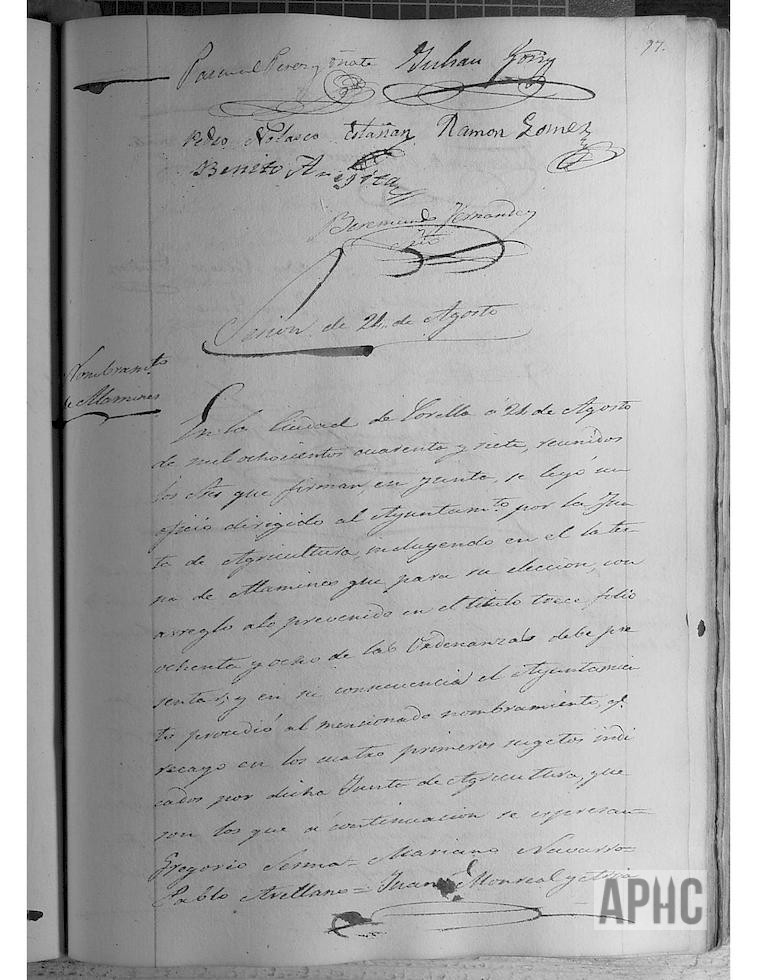 97.
Pascual Perez y Oñate Julian
Pedro Nolasco Estañan Ramon Gomez
Benito
Beremundo Fernandez
Srio
Sesion de 24 de Agosto
Nombramto
de Alamines
En la Ciudad de Corella a 24 de Agosto
de mil ochocientos cuarenta y siete, reunidos
los Sres que firman, en junta, se leyó un
oficio dirigido al Ayuntamto por la Jun
ta de Agricultura, incluyendo en el la ter-
na de Alamines que para su eleccion, con
arreglo alo prevenido en el titulo trece, folio
ochenta y ocho de las Ordenanzas debe pre
sentar; y en su consecuencia el Ayuntamien
to procedió al mencionado nombramiento, q.
recayo en los cuatro primeros sugetos indi
cados por dicha Junta de Agricultura, que
son los que a continuacion se espresan=
Gregorio Serna= Mariano Navarro=
Pablo Arellano= Juan Monreal y
APHC